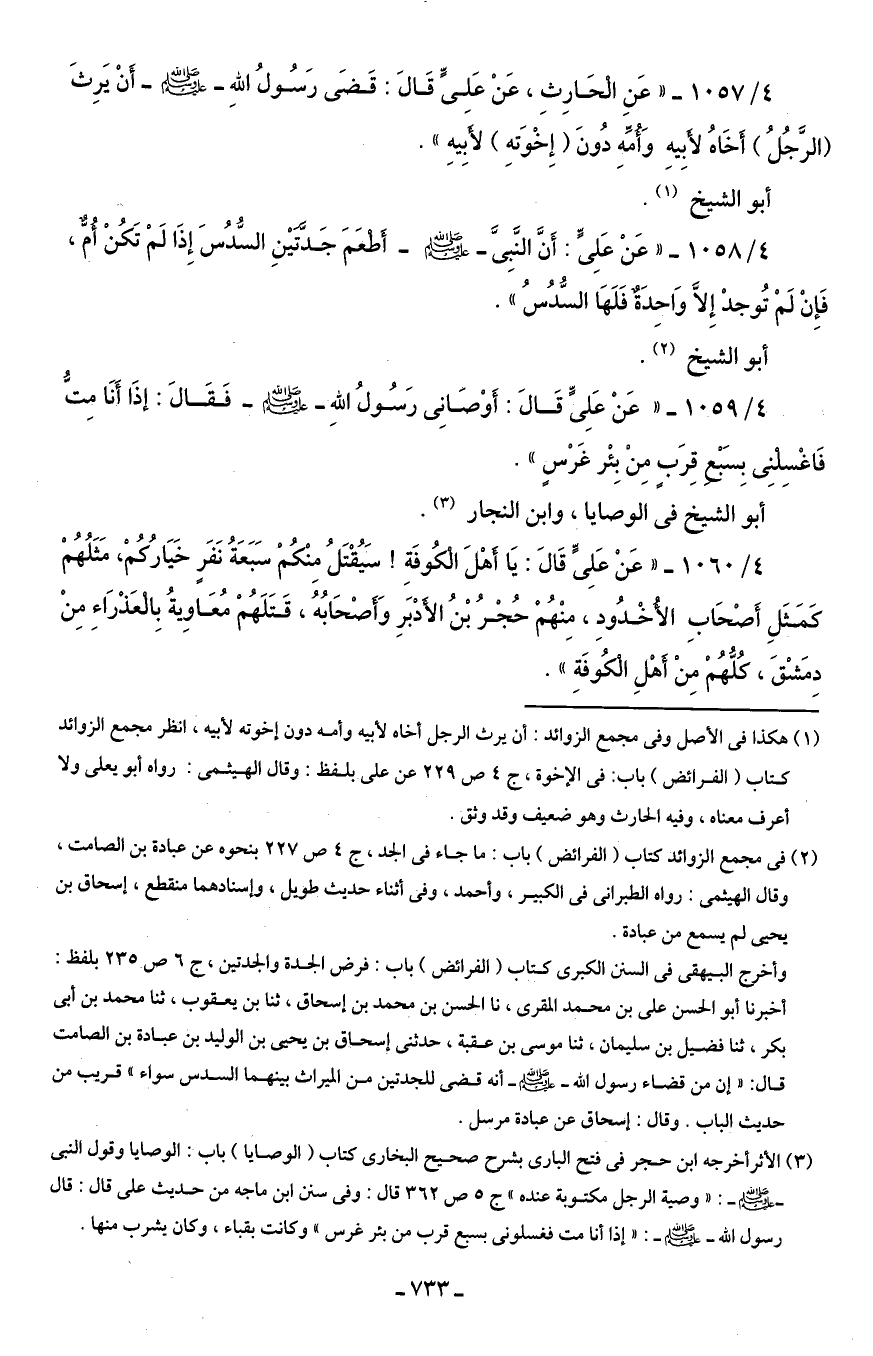 ٤/ ١٠٥٧ ـ « عَنِ الْحَـارِثِ ، عَنْ عَلِـىٍّ قَـالَ : قَـضَى رَسُـولُ اللهِ ـ ﷺ ـ أَنْ يَرِثَ
(الرَّجُلُ) أَخَاهُ لأَبِيهِ وَأُمِّهِ دُونَ ( إِخْوَتِهِ ) لأَبِيهِ » .
أبو الشيخ (١) .
٤/ ١٠٥٨ ـ « عَنْ عَلِىٍّ : أَنَّ النَّبِىَّ ـ ﷺ ـ أَطْعَمَ جَـدَّتَيْنِ السُّدُسَ إِذَا لَمْ تَكُنْ أُمٌّ ،
فَإِنْ لَمْ تُوجدْ إِلاَّ وَاحِدَةٌ فَلَهَا السُّدُسُ » .
أبو الشيخ (٢) .
٤/ ١٠٥٩ ـ « عَنْ عَلِىٍّ قَـالَ : أَوْصَـانِى رَسُـولُ اللهِ ـ ﷺ ـ فَـقَـالَ : إِذَا أَنَا مِتُّ
فَاغْسِلْنِى بِسَبْعِ قِرَبٍ مِنْ بِئْرِ غَرْسٍ » .
أبو الشيخ فى الوصايا ، وابن النجار (٣) .
٤/ ١٠٦٠ ـ « عَنْ عَلِىٍّ قَالَ : يَا أَهْلَ الْكُوفَةِ ! سَيُقْتَلُ مِنْكُمْ سَبَعَةُ نَفَرٍ خَيَارُكُمْ، مَثَلُهُمْ
كَمَـثَلِ أَصْحَابِ الأُخْـدُودِ ، مِنْهُمْ حُجْـرُ بْنُ الأَدْبَرِ وَأَصْحَابُهُ ، قَـتَلَهُمْ مُعَـاوِيةُ بِالْعَذْرَاءِ مِنْ
دِمَشْقَ ، كُلُّهُمْ مِنْ أَهْلِ الْكُوفَةِ » .
(١) هكذا فى الأصل وفى مجمع الزوائد : أن يرث الرجل أخاه لأبيه وأمـه دون إخوته لأبيه ، انظر مجمع الزوائد
كـتاب ( الفـرائض ) باب: فى الإخوة ، ج ٤ ص ٢٢٩ عن على بلـفظ : وقال الهيثـمى : رواه أبو يعلى ولا
أعرف معناه ، وفيه الحارث وهو ضعيف وقد وثق .
(٢) فى مجمع الزوائد كتاب ( الفرائض ) باب : ما جـاء فى الجد ، ج ٤ ص ٢٢٧ بنحوه عن عبادة بن الصامت ،
وقال الهيثمى : رواه الطبرانى فى الكبيـر ، وأحمد ، وفى أثناء حديث طويل ، وإسنادهما منقطع ، إسحاق بن
يحيى لم يسمع من عبادة .
وأخرج البـيهقى فى السنن الكبرى كـتاب ( الفرائض ) باب : فرض الجـدة والجدتين ، ج ٦ ص ٢٣٥ بلفظ :
أخبرنا أبو الحسن على بن محـمد المقرى ، نا الحسن بن محمد بن إسحاق ، ثنا بن يعـقوب ، ثنا محمد بن أبى
بكر ، ثنا فضـيل بن سليمان ، ثنا موسى بن عـقبة ، حدثنى إسحـاق بن يحيى بن الوليد بن عبـادة بن الصامت
قـال: « إن من قضـاء رسول الله ـ ﷺ ـ أنه قـضى للجدتين مـن الميراث بينهمـا السدس سواء » قـريب من
حديث الباب . وقال : إسحاق عن عبادة مرسل .
(٣) الأثر أخرجه ابن حـجر فى فتح البارى بشرح صحيح البخارى كتاب ( الوصـايا ) باب : الوصايا وقول النبى
ـ ﷺ ـ : « وصية الرجل مكتـوبة عنده » ج ٥ ص ٣٦٢ قال : وفى سنن ابن ماجه من حـديث على قال : قال
رسول الله ـ ﷺ ـ : « إذا أنا مت فغسلونى بسبع قرب من بئر غرس » وكانت بقباء ، وكان يشرب منها .
ـ ٧٣٣ ـ